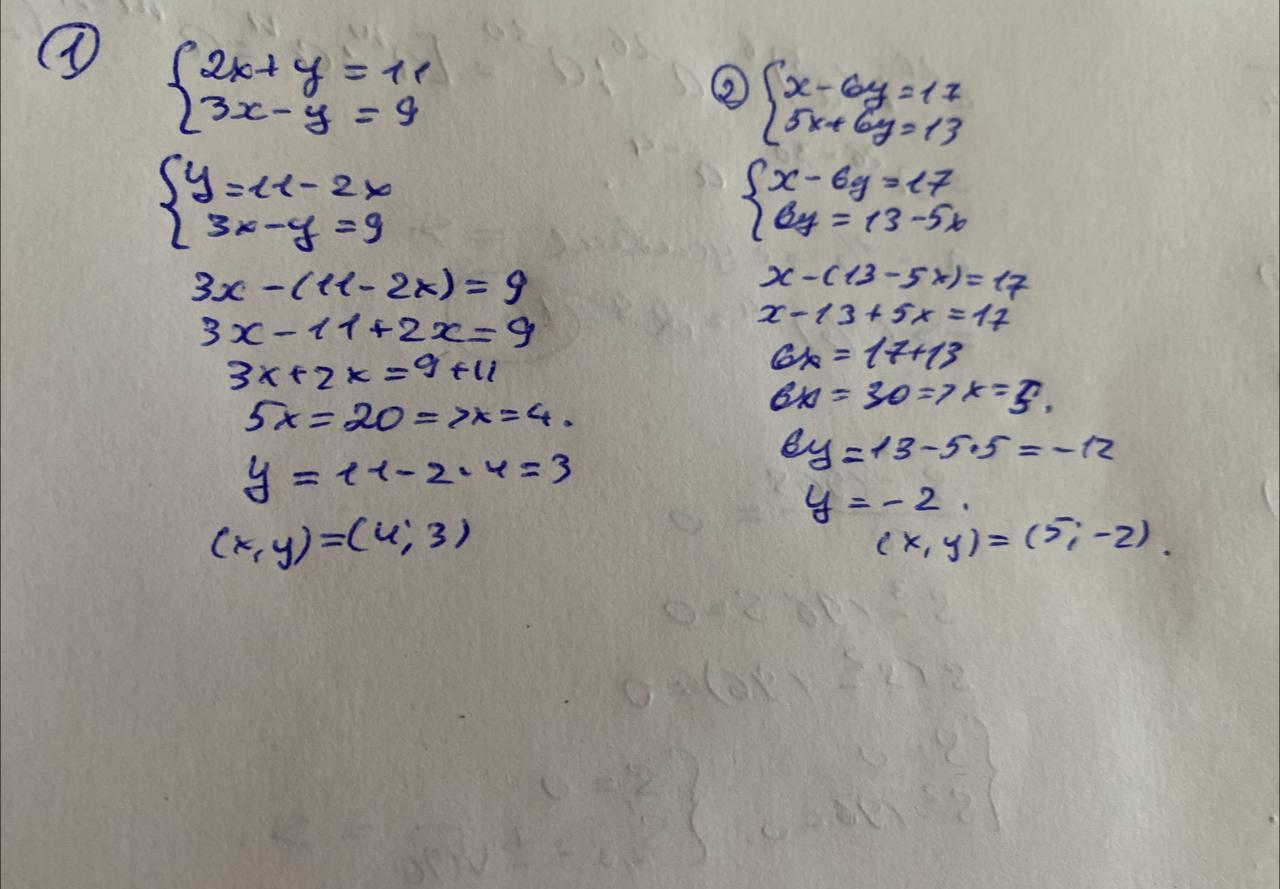 ①
2x + y = 11
3x - y = 9
y = 11 - 2x
3x - y = 9
3x - (11 - 2x) = 9
3x - 11 + 2x = 9
3x + 2x = 9 + 11
5x = 20 => x = 4.
y = 11 - 2 · 4 = 3
(x, y) = (4; 3)
② x - 6y = 17
5x + 6y = 13
x - 6y = 17
6y = 13 - 5x
x - (13 - 5x) = 17
x - 13 + 5x = 17
6x = 17 + 13
6x = 30 => x = 5.
6y = 13 - 5 · 5 = -12
y = -2.
(x, y) = (5; -2).